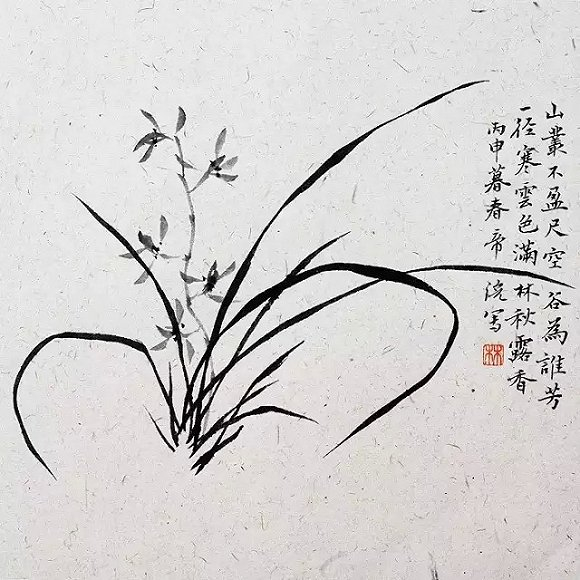 山叢不盈尺空谷為誰芳
一径寒雲色滿林秋露香
丙申暮春帝浣写